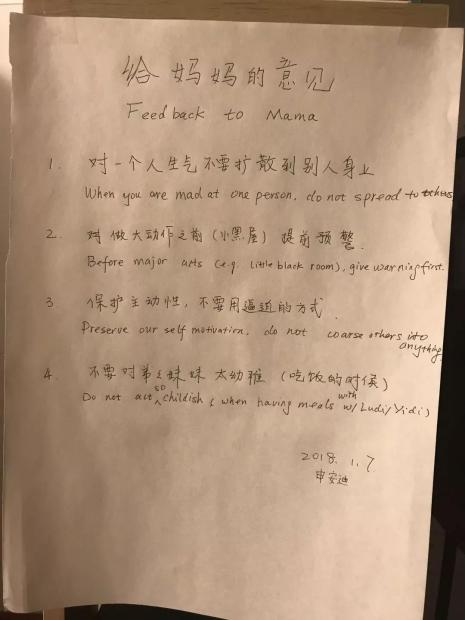 给妈妈的意见
Feedback to Mama
1. 对一个人生气不要扩散到别人身上
When you are mad at one person, do not spread to others
2. 对做大动作之前(小黑屋)提前预警.
Before major acts (e.g. little black room), give warning first.
3. 保护主动性, 不要用逼迫的方式.
Preserve our self motivation, do not coarse others into anything.
4. 不要对弟弟妹妹太幼稚 (吃饭的时候)
Do not act so childish (when having meals with w/ Ludi/Yidi)
2018. 1. 7.
申安迪